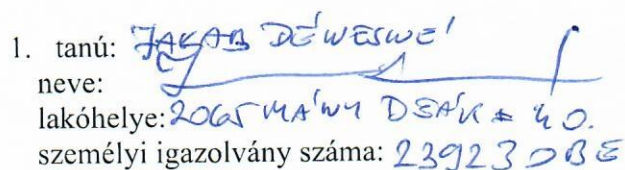 1. tanú: JAKAB DÉNESNÉ
neve:
lakóhelye: 2065 MÁNY DEÁK F. 40.
személyi igazolvány száma: 239230BE